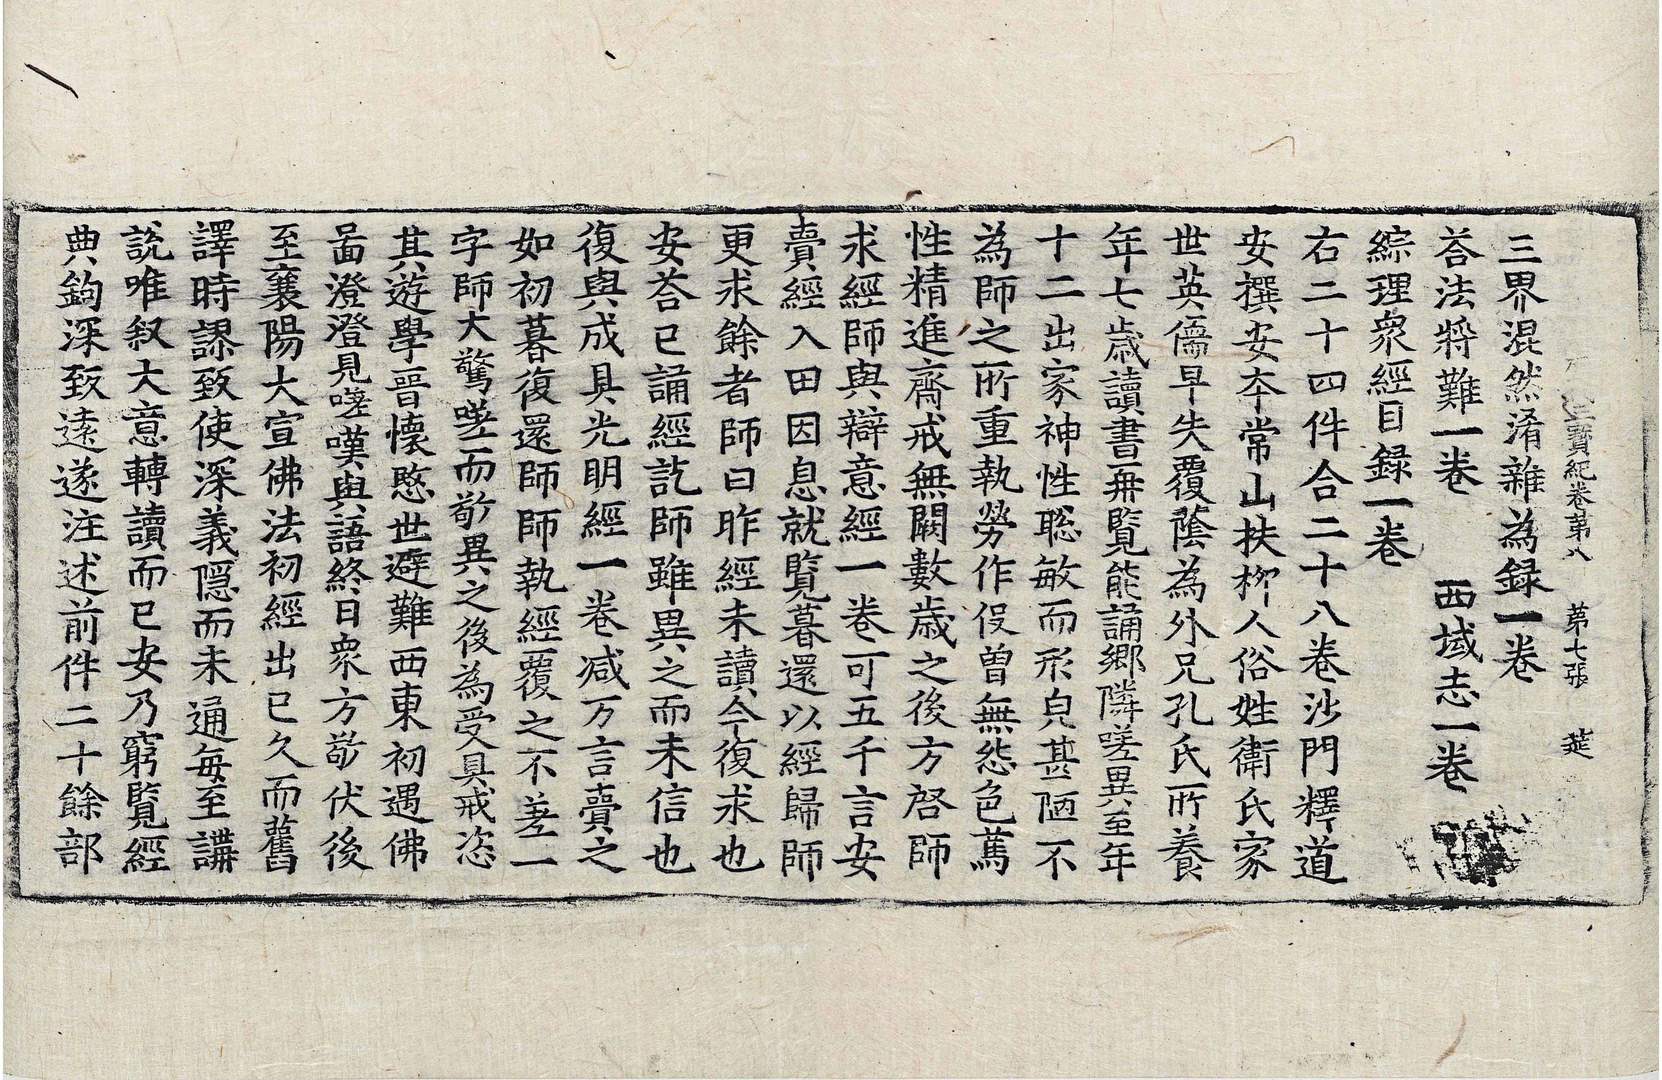 三寶紀卷第八 第七張 莚
三界混然淆雜為録一卷
荅法將難一卷 西域志一卷
綜理衆經目録一卷
右二十四件合二十八卷沙門釋道
安撰安夲常山扶柳人俗姓衛氏家
世英儒早失覆蔭為外兄孔氏所養
年七歳讀書再覽能誦鄉隣嗟異至年
十二出家神性聡敏而形皃甚陋不
為師之所重執勞作伇曽無怨色篤
性精進齋戒無闕數歳之後方啓師
求經師與辯意經一卷可五千言安
賷經入田因息就覽暮還以經歸師
更求餘者師曰昨經未讀今復求也
安荅已誦經訖師雖異之而未信也
復與成具光明經一卷减万言賷之
如初暮復還師師執經覆之不差一
字師大驚嗟而敬異之後為受具戒恣
其遊學晉懷愍世避難西東初遇佛
啚澄澄見嗟嘆與語終日衆方敬伏後
至襄陽大宣佛法初經出已久而舊
譯時謬致使深義隱而未通每至講
說唯叙大意轉讀而已安乃窮覽經
典鉤深致遠遂注述前件二十餘部